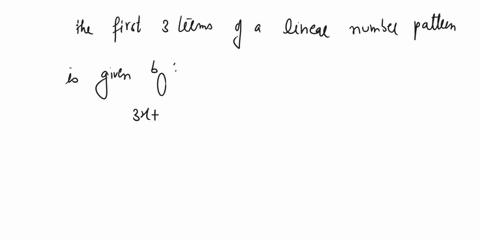 the first 3 terms of a linear number pattern
is given by:
3x+